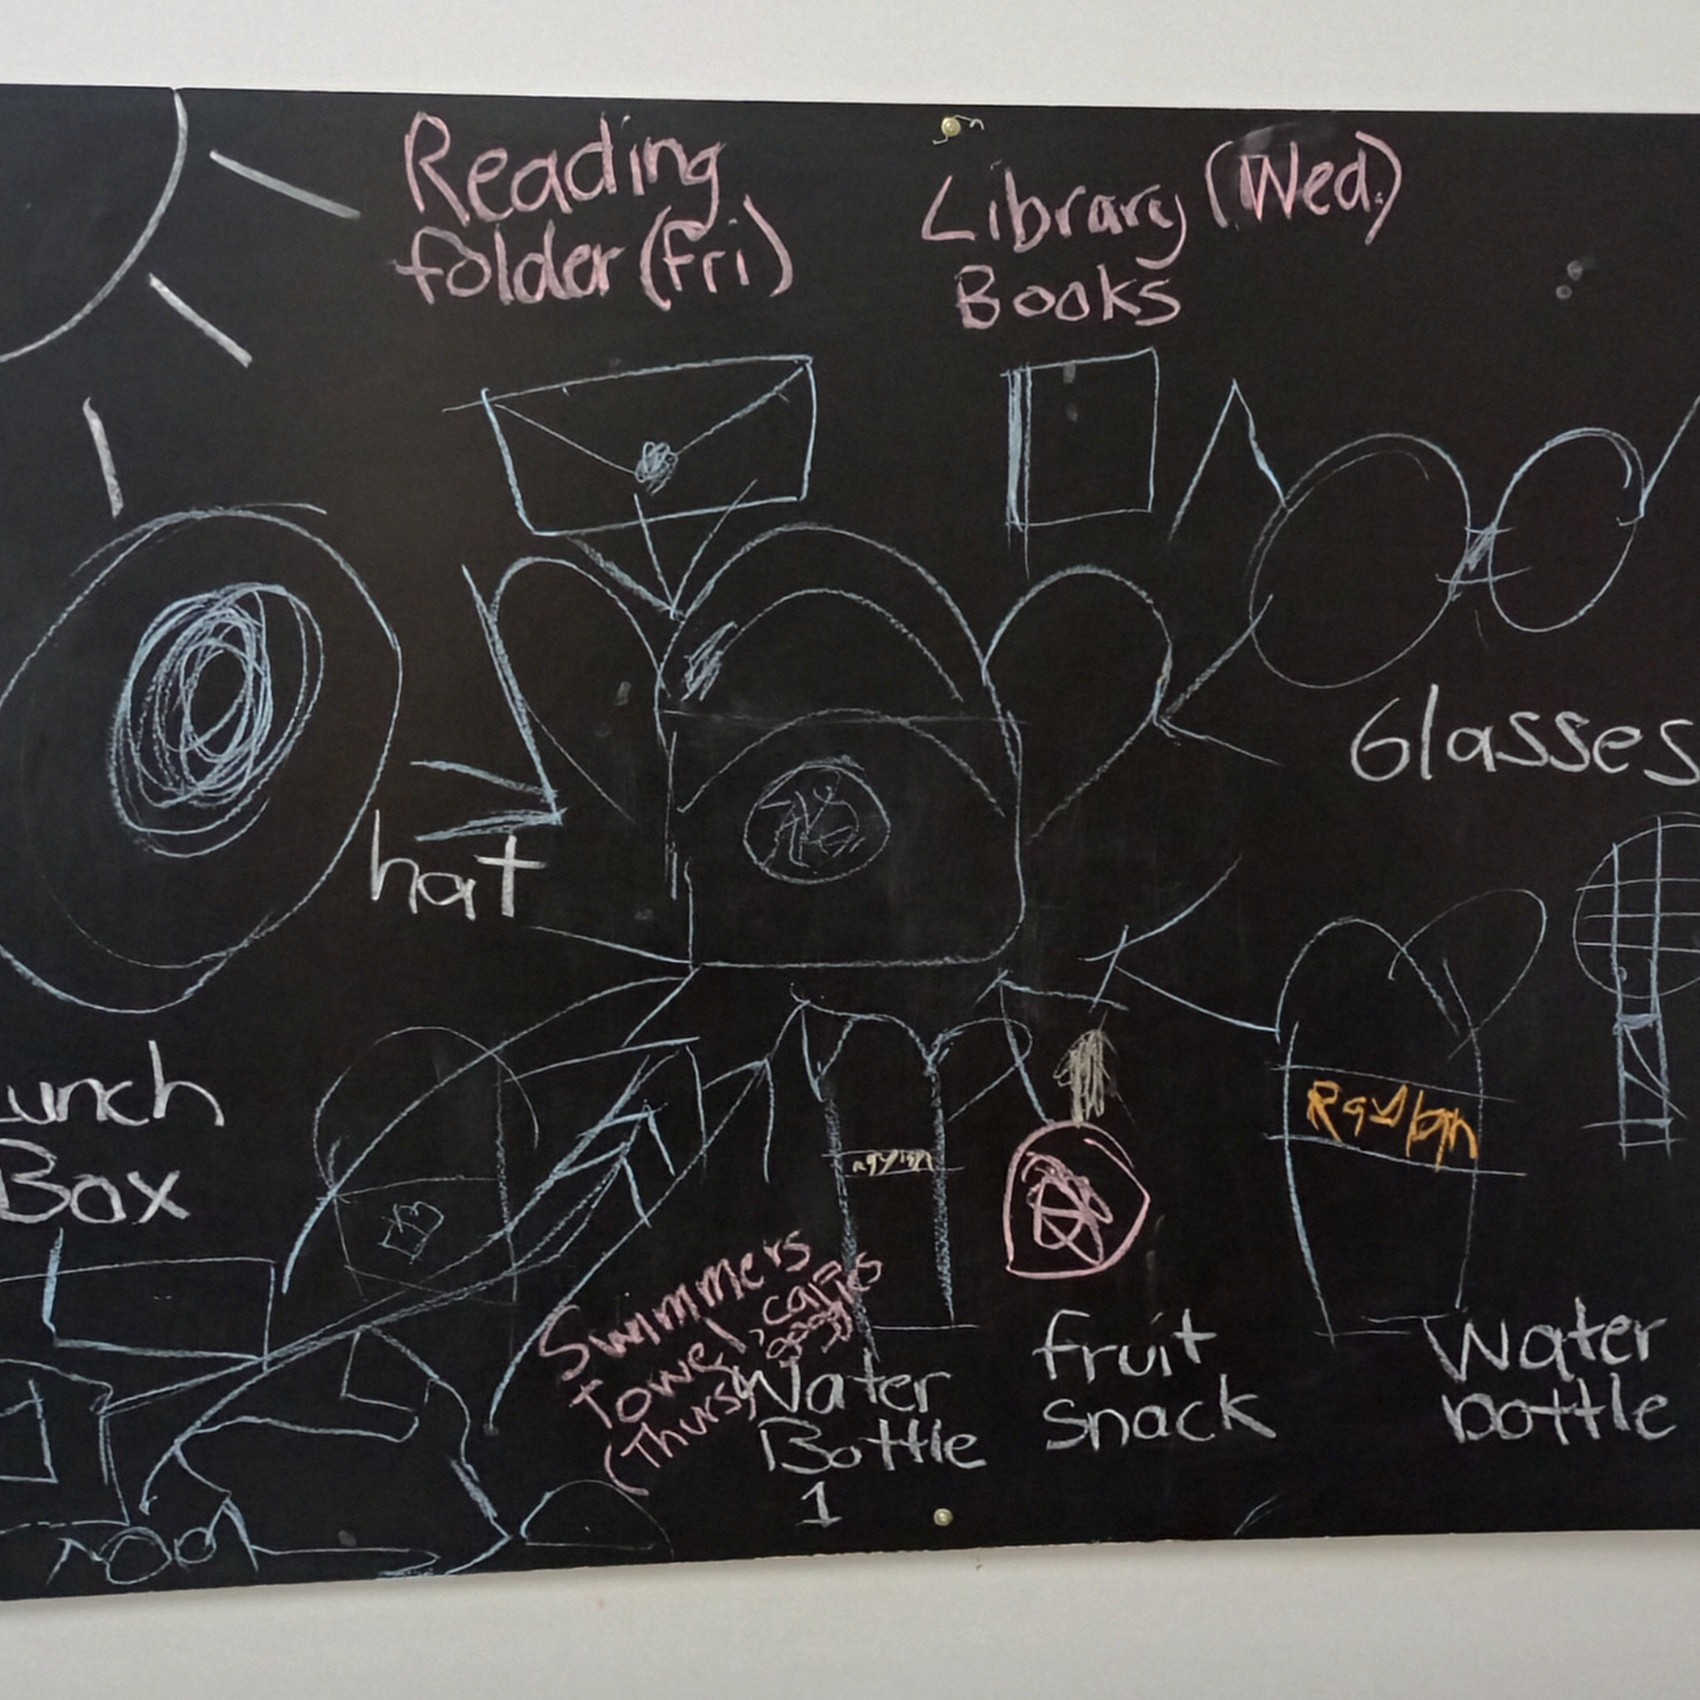 Reading
folder (Fri)
Library (Wed)
Books
Glasses
hat
Lunch
Box
Swimmers
Towel, cap,
goggles
(Thurs)
Water
Bottle
1
fruit
snack
Water
bottle